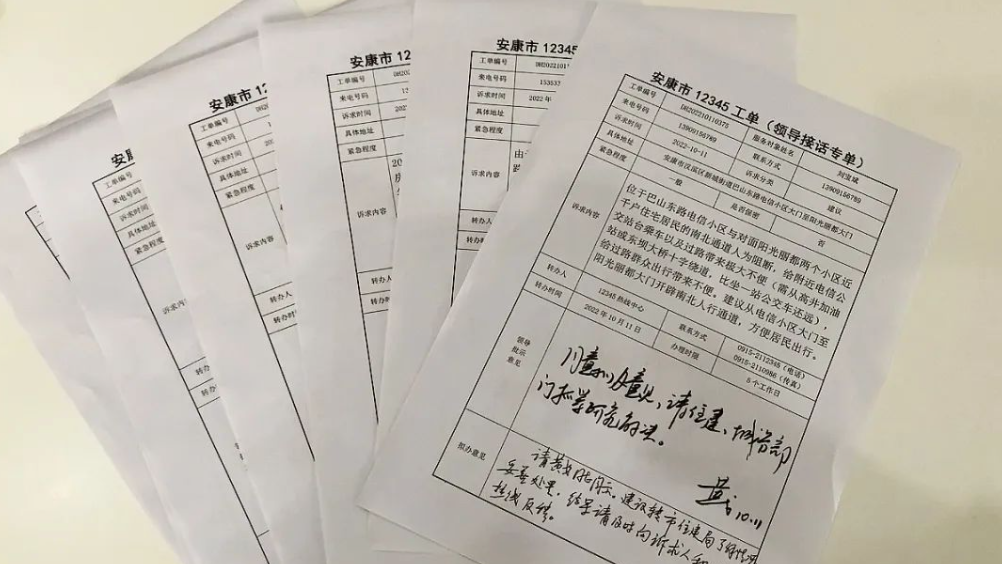 安康市
安康市 12
安康市 12345
安康市 12345 工单（领导接话专单）
工单编号
来电号码
诉求时间
具体地址
紧急程度
工单编号
来电号码
诉求时间
具体地址
紧急程度
诉求内容
转办人
转办时间
工单编号
来电号码
诉求时间
具体地址
紧急程度
诉求内容
转办人
转办时间
工单编号
来电号码
诉求时间 2022年
具体地址
紧急程度
诉求内容
转办人
转办时间
工单编号 082022101 10375 服务对象姓名 刘宝斌
来电号码 13909156789 联系方式 13909156789
诉求时间 2022-10-11 诉求分类 建议
具体地址 安康市汉滨区新城街道巴山东路电信小区大门至阳光丽都大门
紧急程度 一般 是否保密 否
诉求内容
位于巴山东路电信小区与对面阳光丽都两个小区近
千户住宅居民的南北通道人为阻断，给附近电信公
交站台乘车以及过路带来极大不便（需从高井加油
站或东坝大桥十字绕道，比坐一站公交车还远），
给过路群众出行带来不便。建议从电信小区大门至
阳光丽都大门开辟南北人行通道，方便居民出行。
转办人 12345 热线中心 联系方式 0915-2112345（电话）
0915-2110986（传真）
转办时间 2022 年 10 月 11 日 办理时限 5 个工作日
领导
批示
意见
请住建、城管部
门 研究解决。
10.11
拟办意见
建议转市住建局了解情况
妥善处理，结果请及时向诉求人和
热线反馈。